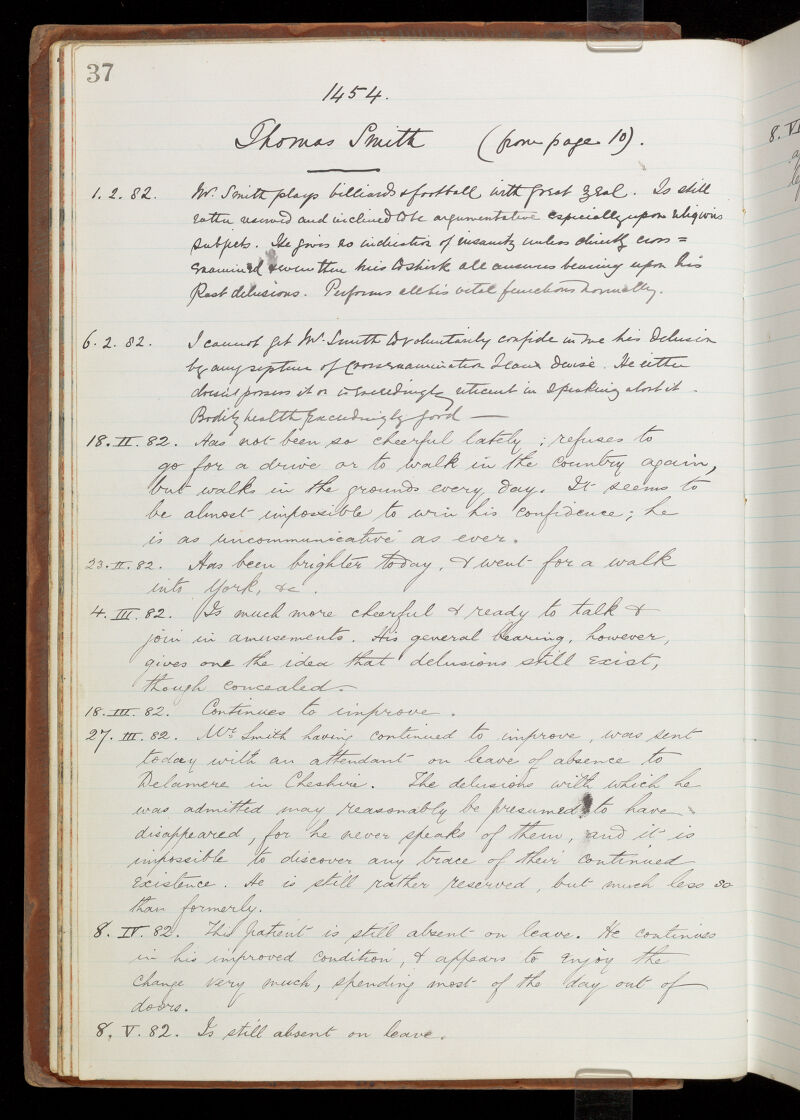 37
1454.
Thomas Smith (from page 10).
1. 2. 82. Mr. Smith plays billiards & football with great zeal. Is still
rather reserved and inclined to be argumentative especially upon religious
subjects. He gives no indication of insanity unless directly cross=
examined & even then tries to shirk all answers bearing upon his
Past delusions. Performs all his vital functions normally.
6. 2. 82. I cannot get Mr. Smith to voluntarily confide in me his delusion
by any system of cross examination I can devise. He either
doesn't possess it or is exceedingly reticent in speaking about it.
Bodily health exceedingly good —
18. II. 82. Has not been so cheerful lately; refuses to
go for a drive or to walk in the country again,
but walks in the grounds every day. It seems to
be almost impossible to win his confidence; he
is as uncommunicative as ever.
23. II. 82. Has been brighter today, & went for a walk
into York, &c.
4. III. 82. Is much more cheerful & ready to talk &
join in amusements. His general bearing, however,
gives one the idea that delusions still exist,
though concealed.
18. III. 82. Continues to improve.
27. III. 82. Mr. Smith having continued to improve, was sent
today with an attendant on leave of absence to
Delamere in Cheshire. The delusions with which he
was admitted may reasonably be presumed to have
disappeared, for he never speaks of them, and it is
impossible to discover any trace of their continued
existence. He is still rather reserved, but much less so
than formerly.
8. IV. 82. This patient is still absent on leave. He continues
in his improved condition, & appears to enjoy the
change very much, spending most of the day out of
doors.
8. V. 82. Is still absent on leave.
8. VI